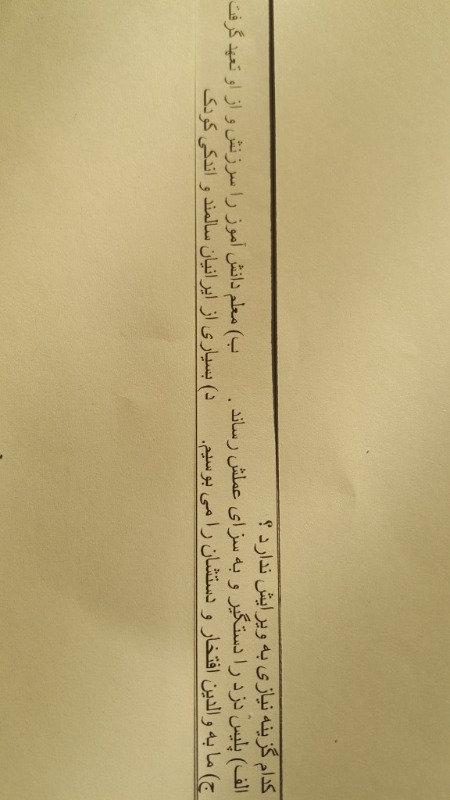 کدام گزینه نیازی به ویرایش ندارد ؟
الف) پلیس دزد را دستگیر و به سزای عملش رساند . ب) معلم دانش آموز را سرزنش و از او تعهد گرفت
ج) ما به والدین افتخار و دستشان را می بوسیم. د) بسیاری از ایرانیان سالمند و اندکی کودک